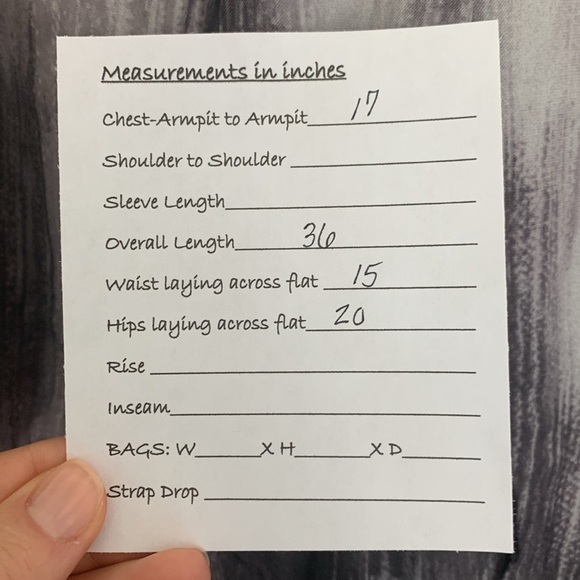 Measurements in inches
Chest-Armpit to Armpit 17
Shoulder to Shoulder
Sleeve Length
Overall Length 36
Waist laying across flat 15
Hips laying across flat 20
Rise
Inseam
BAGS: W X H X D
Strap Drop